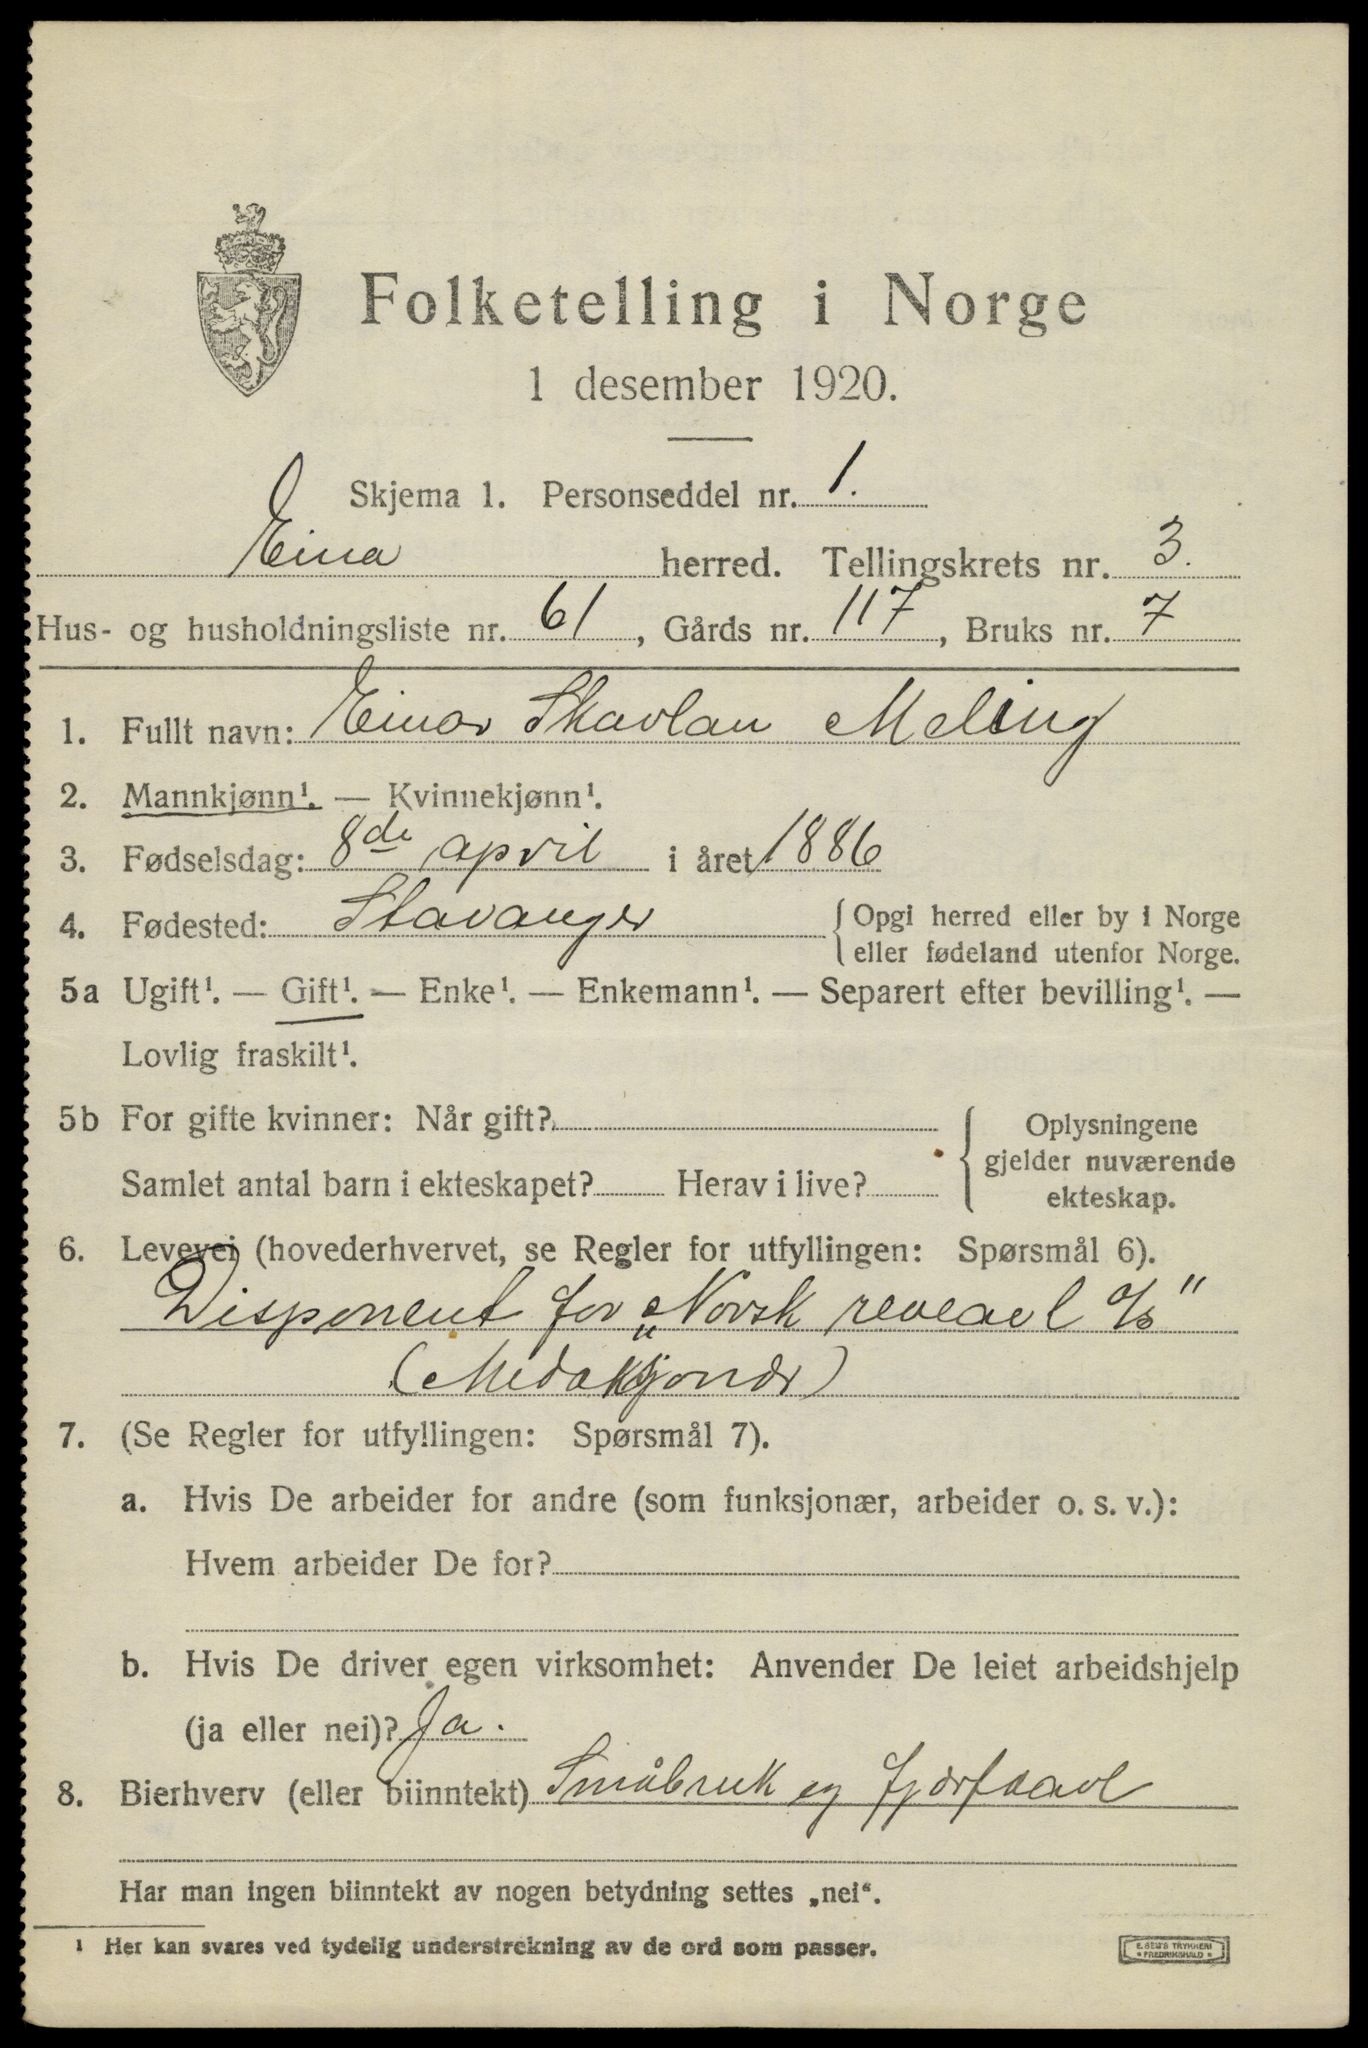 Folketelling i Norge
1 desember 1920.
Skjema 1. Personseddel nr. 1.
Eina herred. Tellingskrets nr. 3.
Hus- og husholdningsliste nr. 61, Gårds nr. 117, Bruks nr. 7
1. Fullt navn: Einar Skavlan Meling
2. Mannkjønn¹. — Kvinnekjønn¹.
3. Fødselsdag: 8de april i året 1886
4. Fødested: Stavanger {Opgi herred eller by i Norge
eller fødeland utenfor Norge.
5a Ugift¹. — Gift¹. — Enke¹. — Enkemann¹. — Separert efter bevilling¹. —
Lovlig fraskilt¹.
5b For gifte kvinner: Når gift?
Samlet antal barn i ekteskapet? Herav i live?
{ Oplysningene
gjelder nuværende
ekteskap.
6. Levevei (hovederhvervet, se Regler for utfyllingen: Spørsmål 6).
Disponent for „Norsk reveavl a/s"
(Medaksjonær)
7. (Se Regler for utfyllingen: Spørsmål 7).
a. Hvis De arbeider for andre (som funksjonær, arbeider o. s. v.):
Hvem arbeider De for?
b. Hvis De driver egen virksomhet: Anvender De leiet arbeidshjelp
(ja eller nei)? Ja.
8. Bierhverv (eller biinntekt) Småbruk og fjærfæavl
Har man ingen biinntekt av nogen betydning settes „nei“.
¹ Her kan svares ved tydelig understrekning av de ord som passer.
E. SEM'S TRYKKERI
• FREDRIKSHALD •